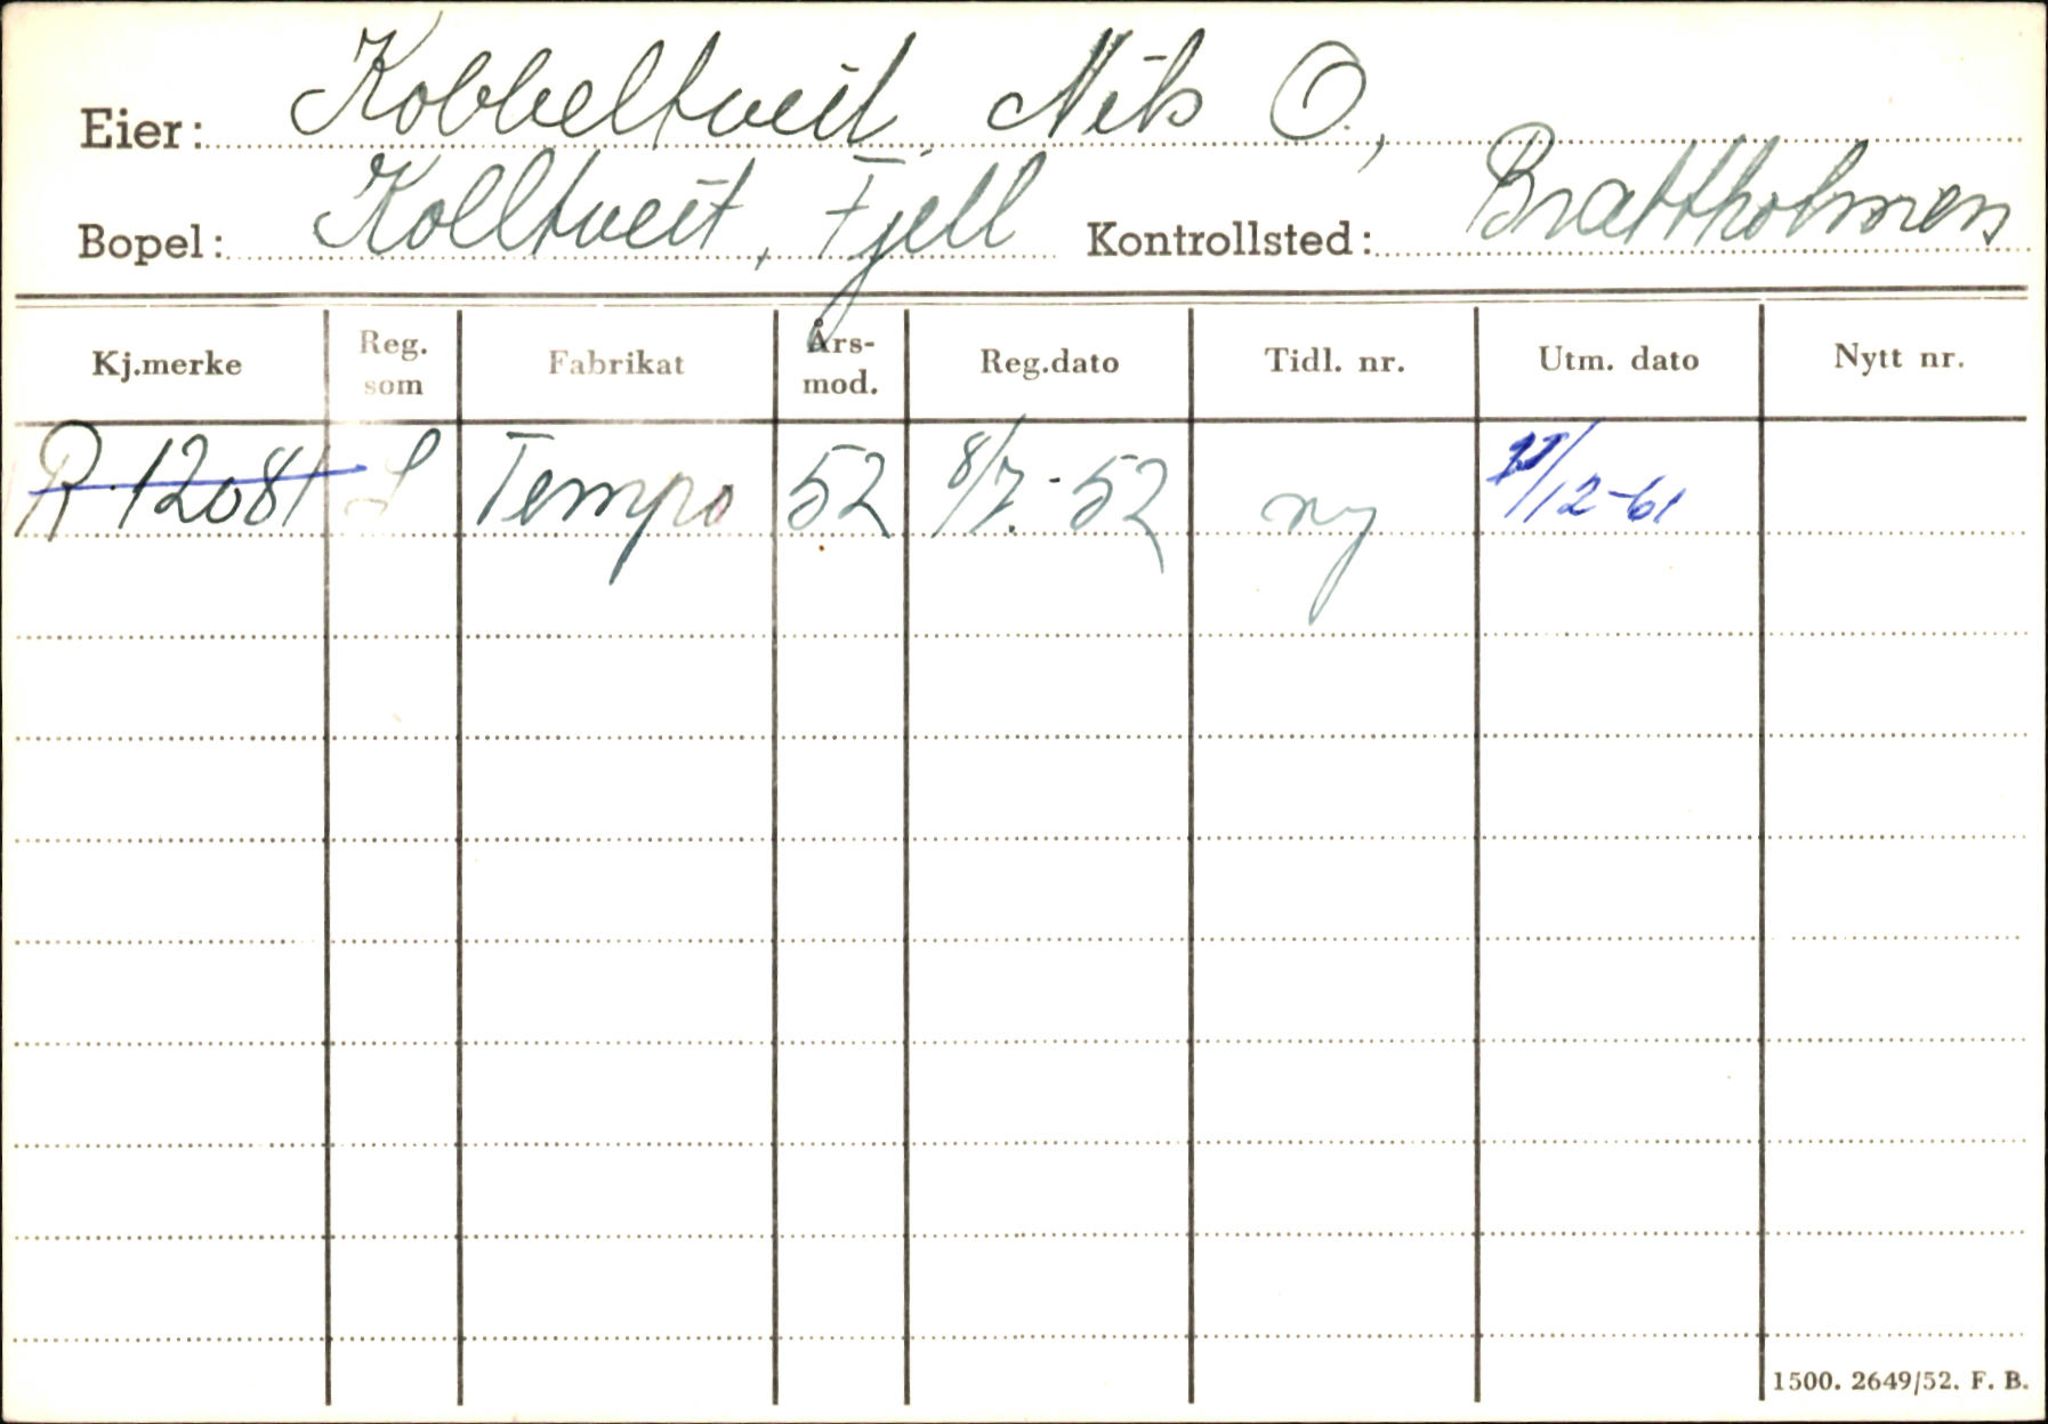 Eier: Kobbeltveit Nils O.,
Bopel: Kolltveit, Fjell Kontrollsted: Brattholmen
Kj.merke Reg. som Fabrikat Års-mod. Reg.dato Tidl. nr. Utm. dato Nytt nr.
R-12081 L Tempo 52 8/7.-52 ny /12-61
1500. 2649/52. F. B.